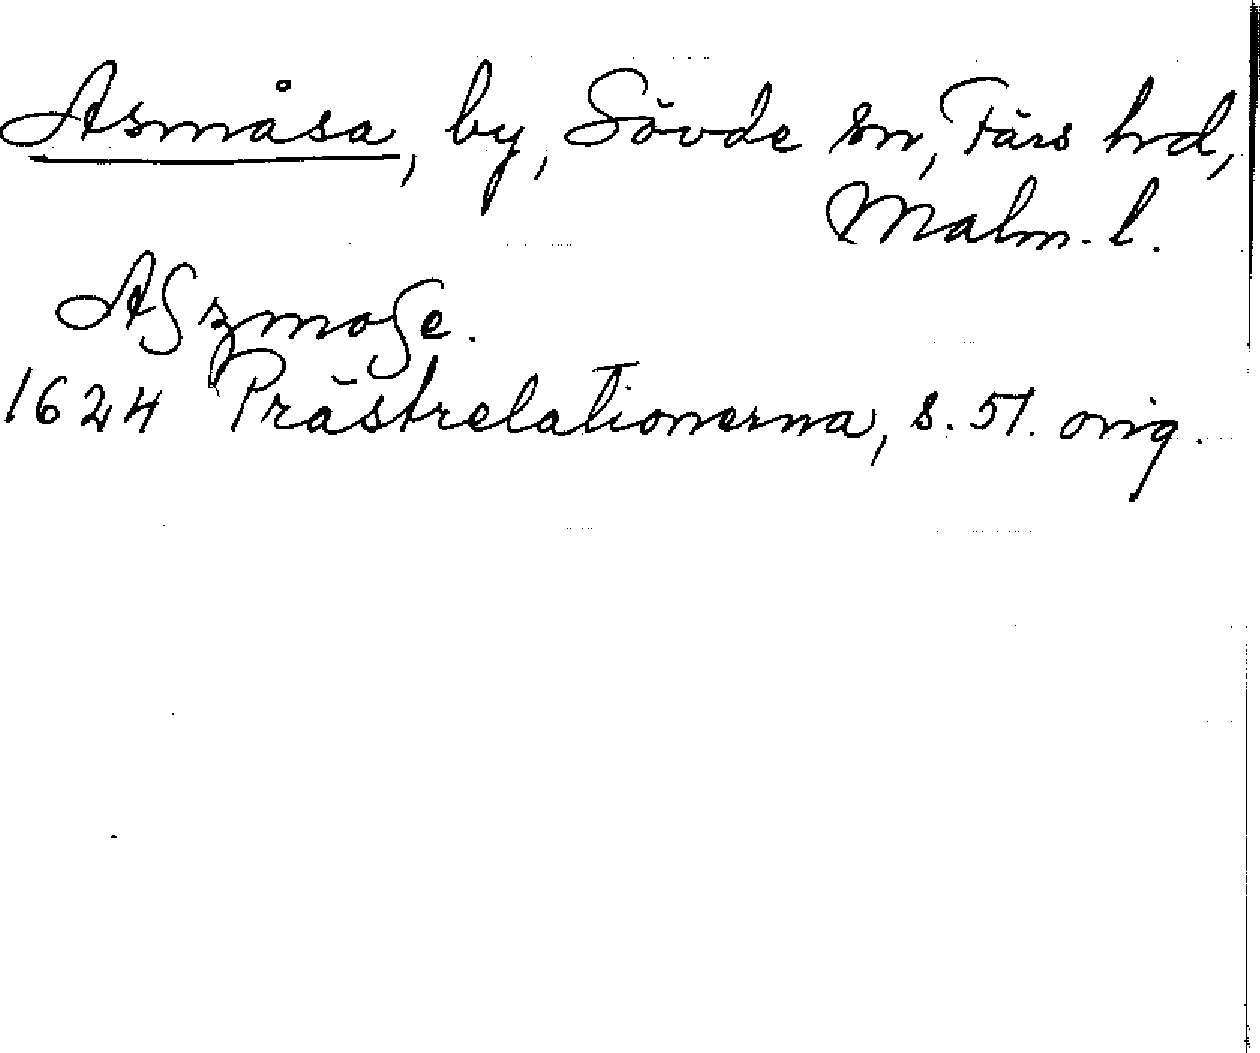 Asmåsa, by, Sövde sn, Färs hd,
Malm. l.
Aſzmoſe.
1624 Prästrelationerna, s. 51. orig.